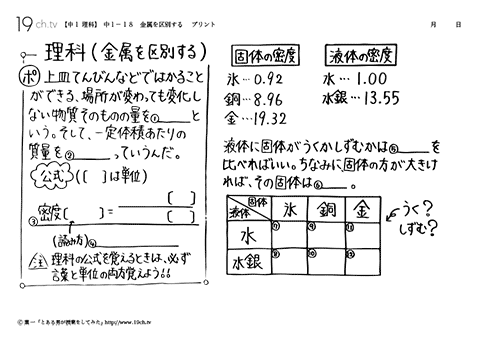 19ch.tv 【中1 理科】 中1-18 金属を区別する プリント 月 日
理科(金属を区別する)
ポ 上皿てんびんなどではかること
ができる、場所が変わっても変化し
ない物質そのものの量を①
という。そして、一定体積あたりの
質量を② っていうんだ。
公式 ([ ]は単位)
③ 密度[ ] = [ ] [ ]
(読み方)④
注 理科の公式を覚えるときは、必ず
言葉と単位の両方覚えよう!!
固体の密度
氷…0.92
銅…8.96
金…19.32
液体の密度
水…1.00
水銀…13.55
液体に固体がうくかしずむかは⑤ を
比べればいい。ちなみに固体の方が大きけ
れば、その固体は⑥ 。
固体 液体 氷 銅 金
水 ⑦ ⑨ ⑪
水銀 ⑧ ⑩ ⑫
うく?
しずむ?
© 葉一「とある男が授業をしてみた」http://www.19ch.tv